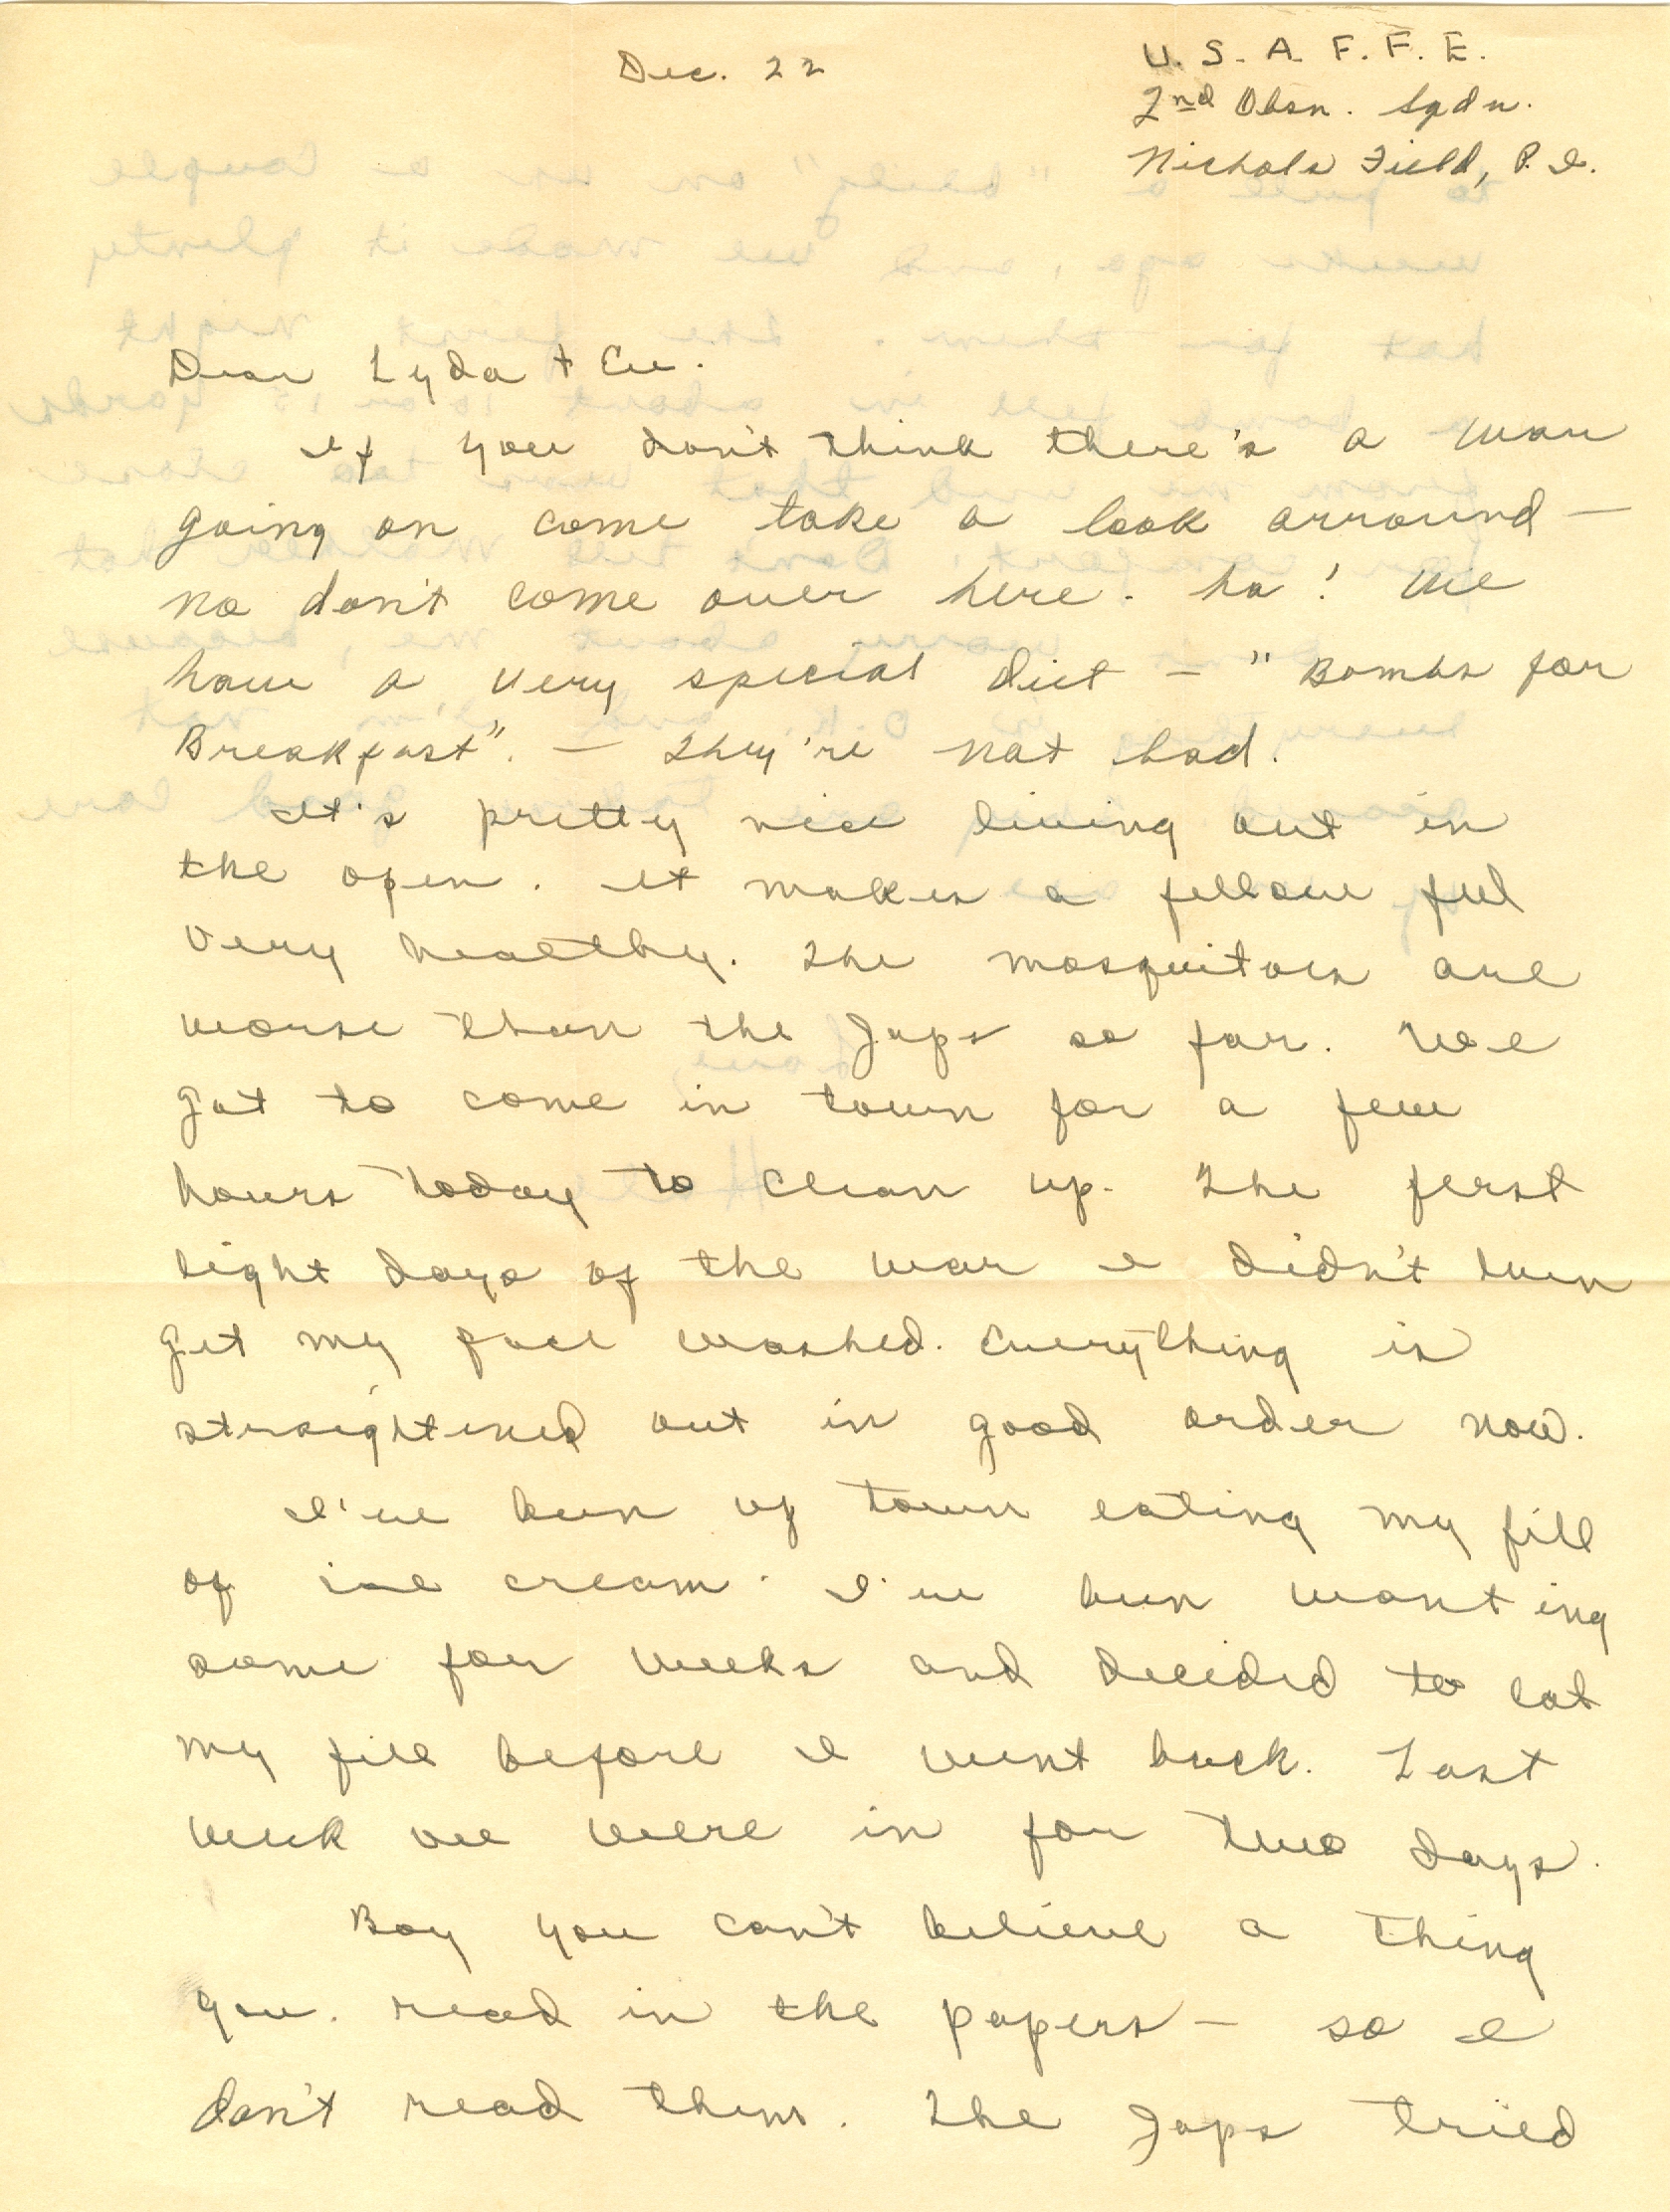 Dec. 22
U. S. A. F. F. E.
2nd Obsn. Sqdn.
Nichols Field, P. I.
Dear Lyda + Cee.
If you don't think there's a war
going on come take a look arround —
no don't come over here. ha! We
have a very special diet — "Bombs for
Breakfast". — They're not bad.
It's pretty nice living out in
the open. It makes a fellow feel
very healthy. The mosquitoes are
worse than the Japs so far. We
got to come in town for a few
hours today to clean up. The first
eight days of the war I didn't even
get my face washed. Everything is
straightened out in good order now.
I've been up town eating my fill
of ice cream. I've been wanting
some for weeks and decided to eat
my fill before I went back. Last
week we were in for two days.
Boy you can't believe a thing
you read in the papers — so I
don't read them. The Japs tried